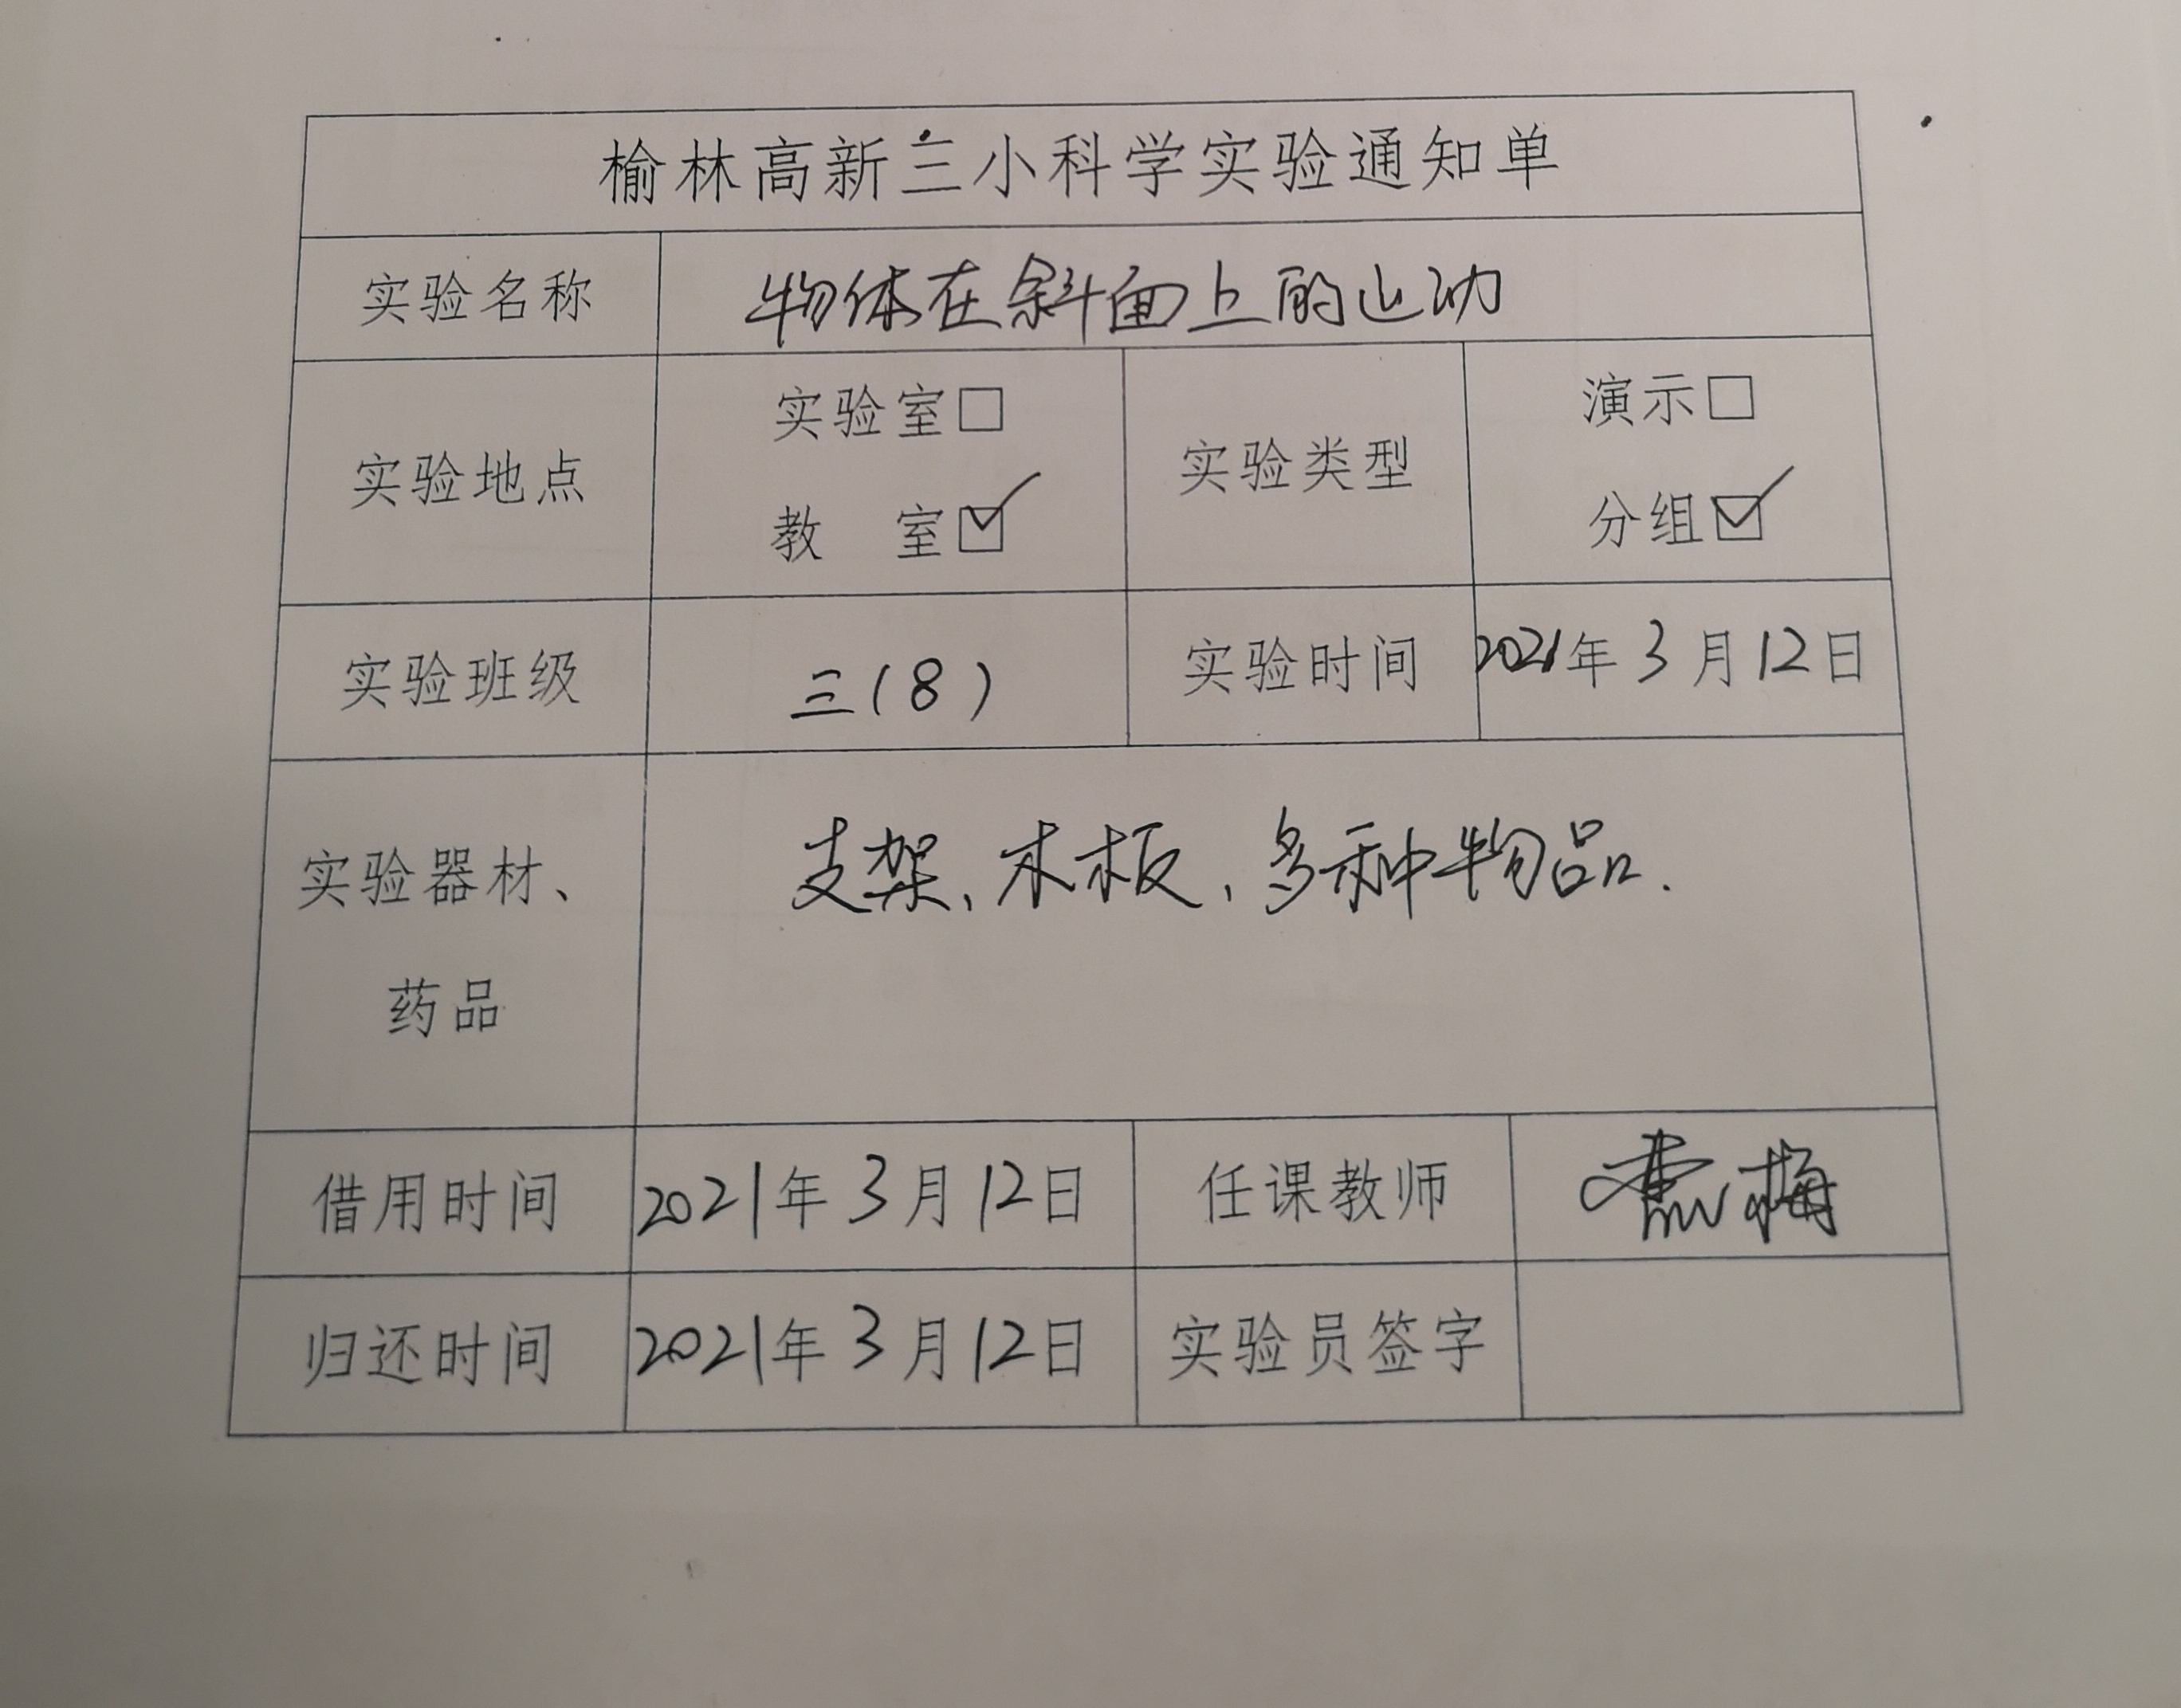 榆林高新三小科学实验通知单
实验名称 物体在斜面上的运动
实验室□ 演示□
实验地点 实验类型
教 室☑ 分组☑
实验班级 三(8) 实验时间 2021年3月12日
实验器材、 支架、木板、多种物品.
药品
借用时间 2021年3月12日 任课教师 梅
归还时间 2021年3月12日 实验员签字